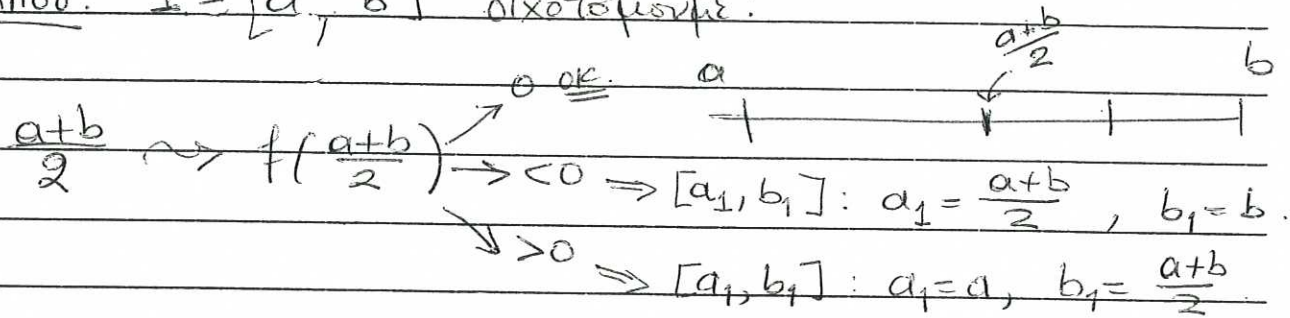 I = [a, b] διχοτομούμε.
a+b/2
0 OK. a b
a+b/2 ⇝ f(a+b/2) → <0 ⇒ [a₁, b₁] : a₁ = a+b/2 , b₁ = b.
>0 ⇒ [a₁, b₁] : a₁ = a, b₁ = a+b/2